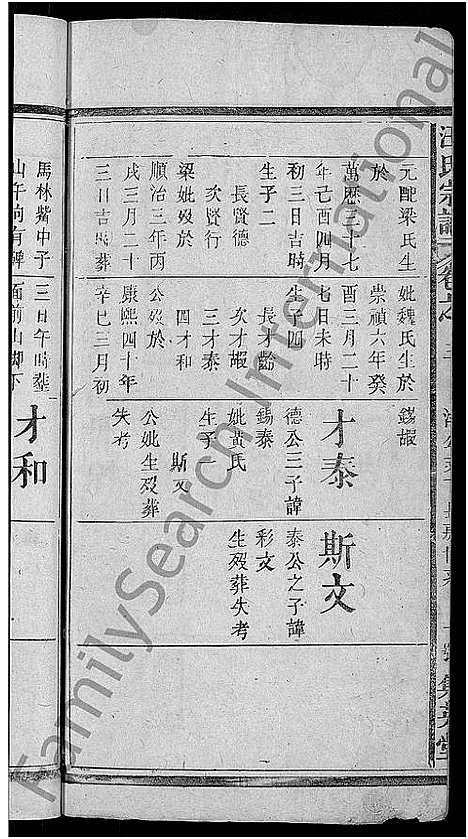 汪氏宗譜
元配梁氏生
於
萬歷三十七
年己酉四月
初三日吉時
生子二
長賢德
次賢行
梁妣歿於
順治三年丙
戌三月二十
三日吉時葬
馬林觜中子
妣魏氏生於
崇禎六年癸
酉三月二十
七日未時
生子四
長才齡
次才嘏
三才泰
四才和
公歿於
康熙四十年
辛巳三月初
三日午時葬
錫嘏
才泰
德公三子諱
錫泰
妣黃氏
生子一
斯文
公妣生歿葬
失考
才和
斯文
泰公之子諱
彩文
生歿葬失考
FamilySearch International